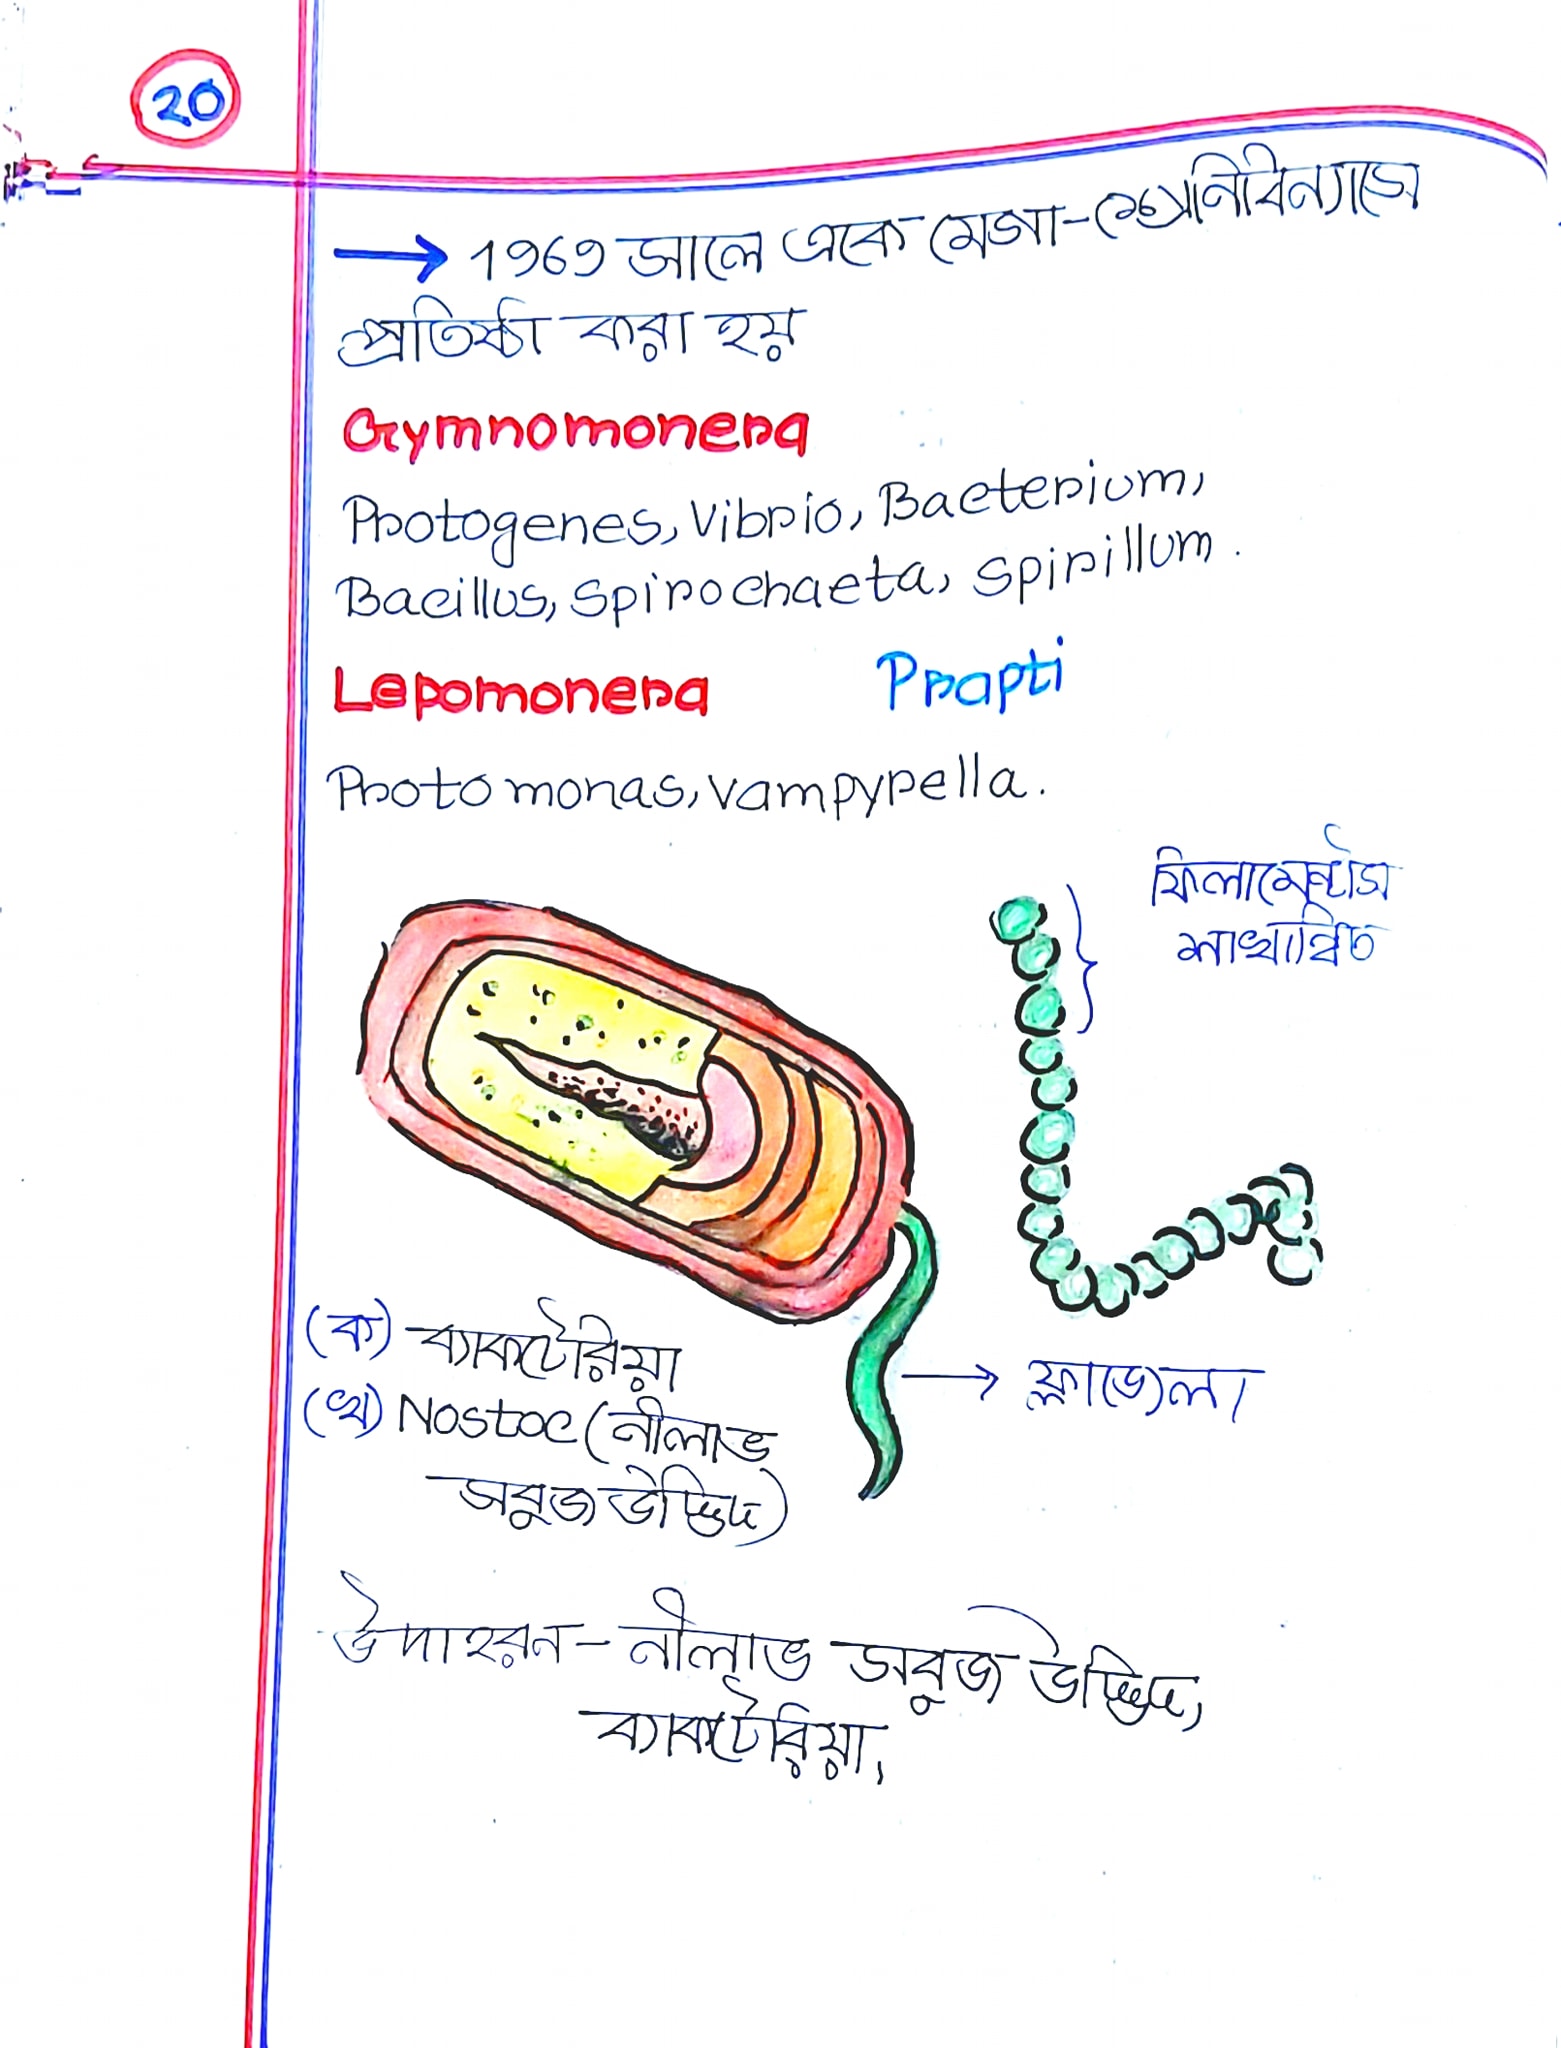 20
→ 1969 সালে একে মেজা-শ্রেনিবিন্যাসে
প্রতিষ্ঠা করা হয়
Gymnomonera
Protogenes, Vibrio, Bacterium,
Bacillus, Spirochaeta, Spirillum.
Lepomonera Prapti
Protomonas, Vampyrella.
ফিলামেন্টাস
শাখান্বিত
(ক) ব্যাকটেরিয়া
→ ফ্লাজেলা
(খ) Nostoc (নীলাভ
সবুজ উদ্ভিদ)
উদাহরন- নীলাভ সবুজ উদ্ভিদ,
ব্যাকটেরিয়া,